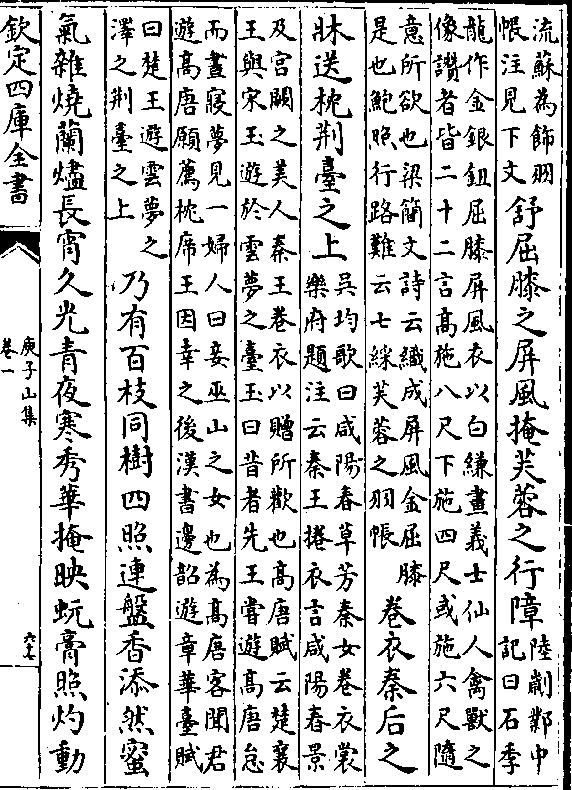 流蘇為飾羽
帳注見下文
舒屈膝之屏風掩芙蓉之行障
陸劌鄴中
記曰石季
龍作金銀鈕屈膝屏風衣以白縑畫義士仙人禽獸之
像讚者皆二十二言高施八尺下施四尺或施六尺隨
意所欲也梁簡文詩云織成屏風金屈膝
是也鮑照行路難云七綵芙蓉之羽帳
卷衣秦后之
牀送枕荆臺之上
吳均歌曰咸陽春草芳秦女卷衣裳
樂府題注云秦王捲衣言咸陽春景
及宮闕之美人秦王卷衣以贈所歡也高唐賦云楚襄
王與宋玉遊於雲夢之臺玉曰昔者先王嘗遊髙唐怠
而晝寢夢見一婦人曰妾巫山之女也為髙唐客聞君
遊髙唐願薦枕席王因幸之後漢書邊韶遊章華臺賦
曰楚王遊雲夢之
澤之荆臺之上
乃有百枝同樹四照連盤香添然蜜
氣雜燒蘭燼長宵久光青夜寒秀華掩映蚖膏照灼動
欽定四庫全書
庾子山集
卷一
六七